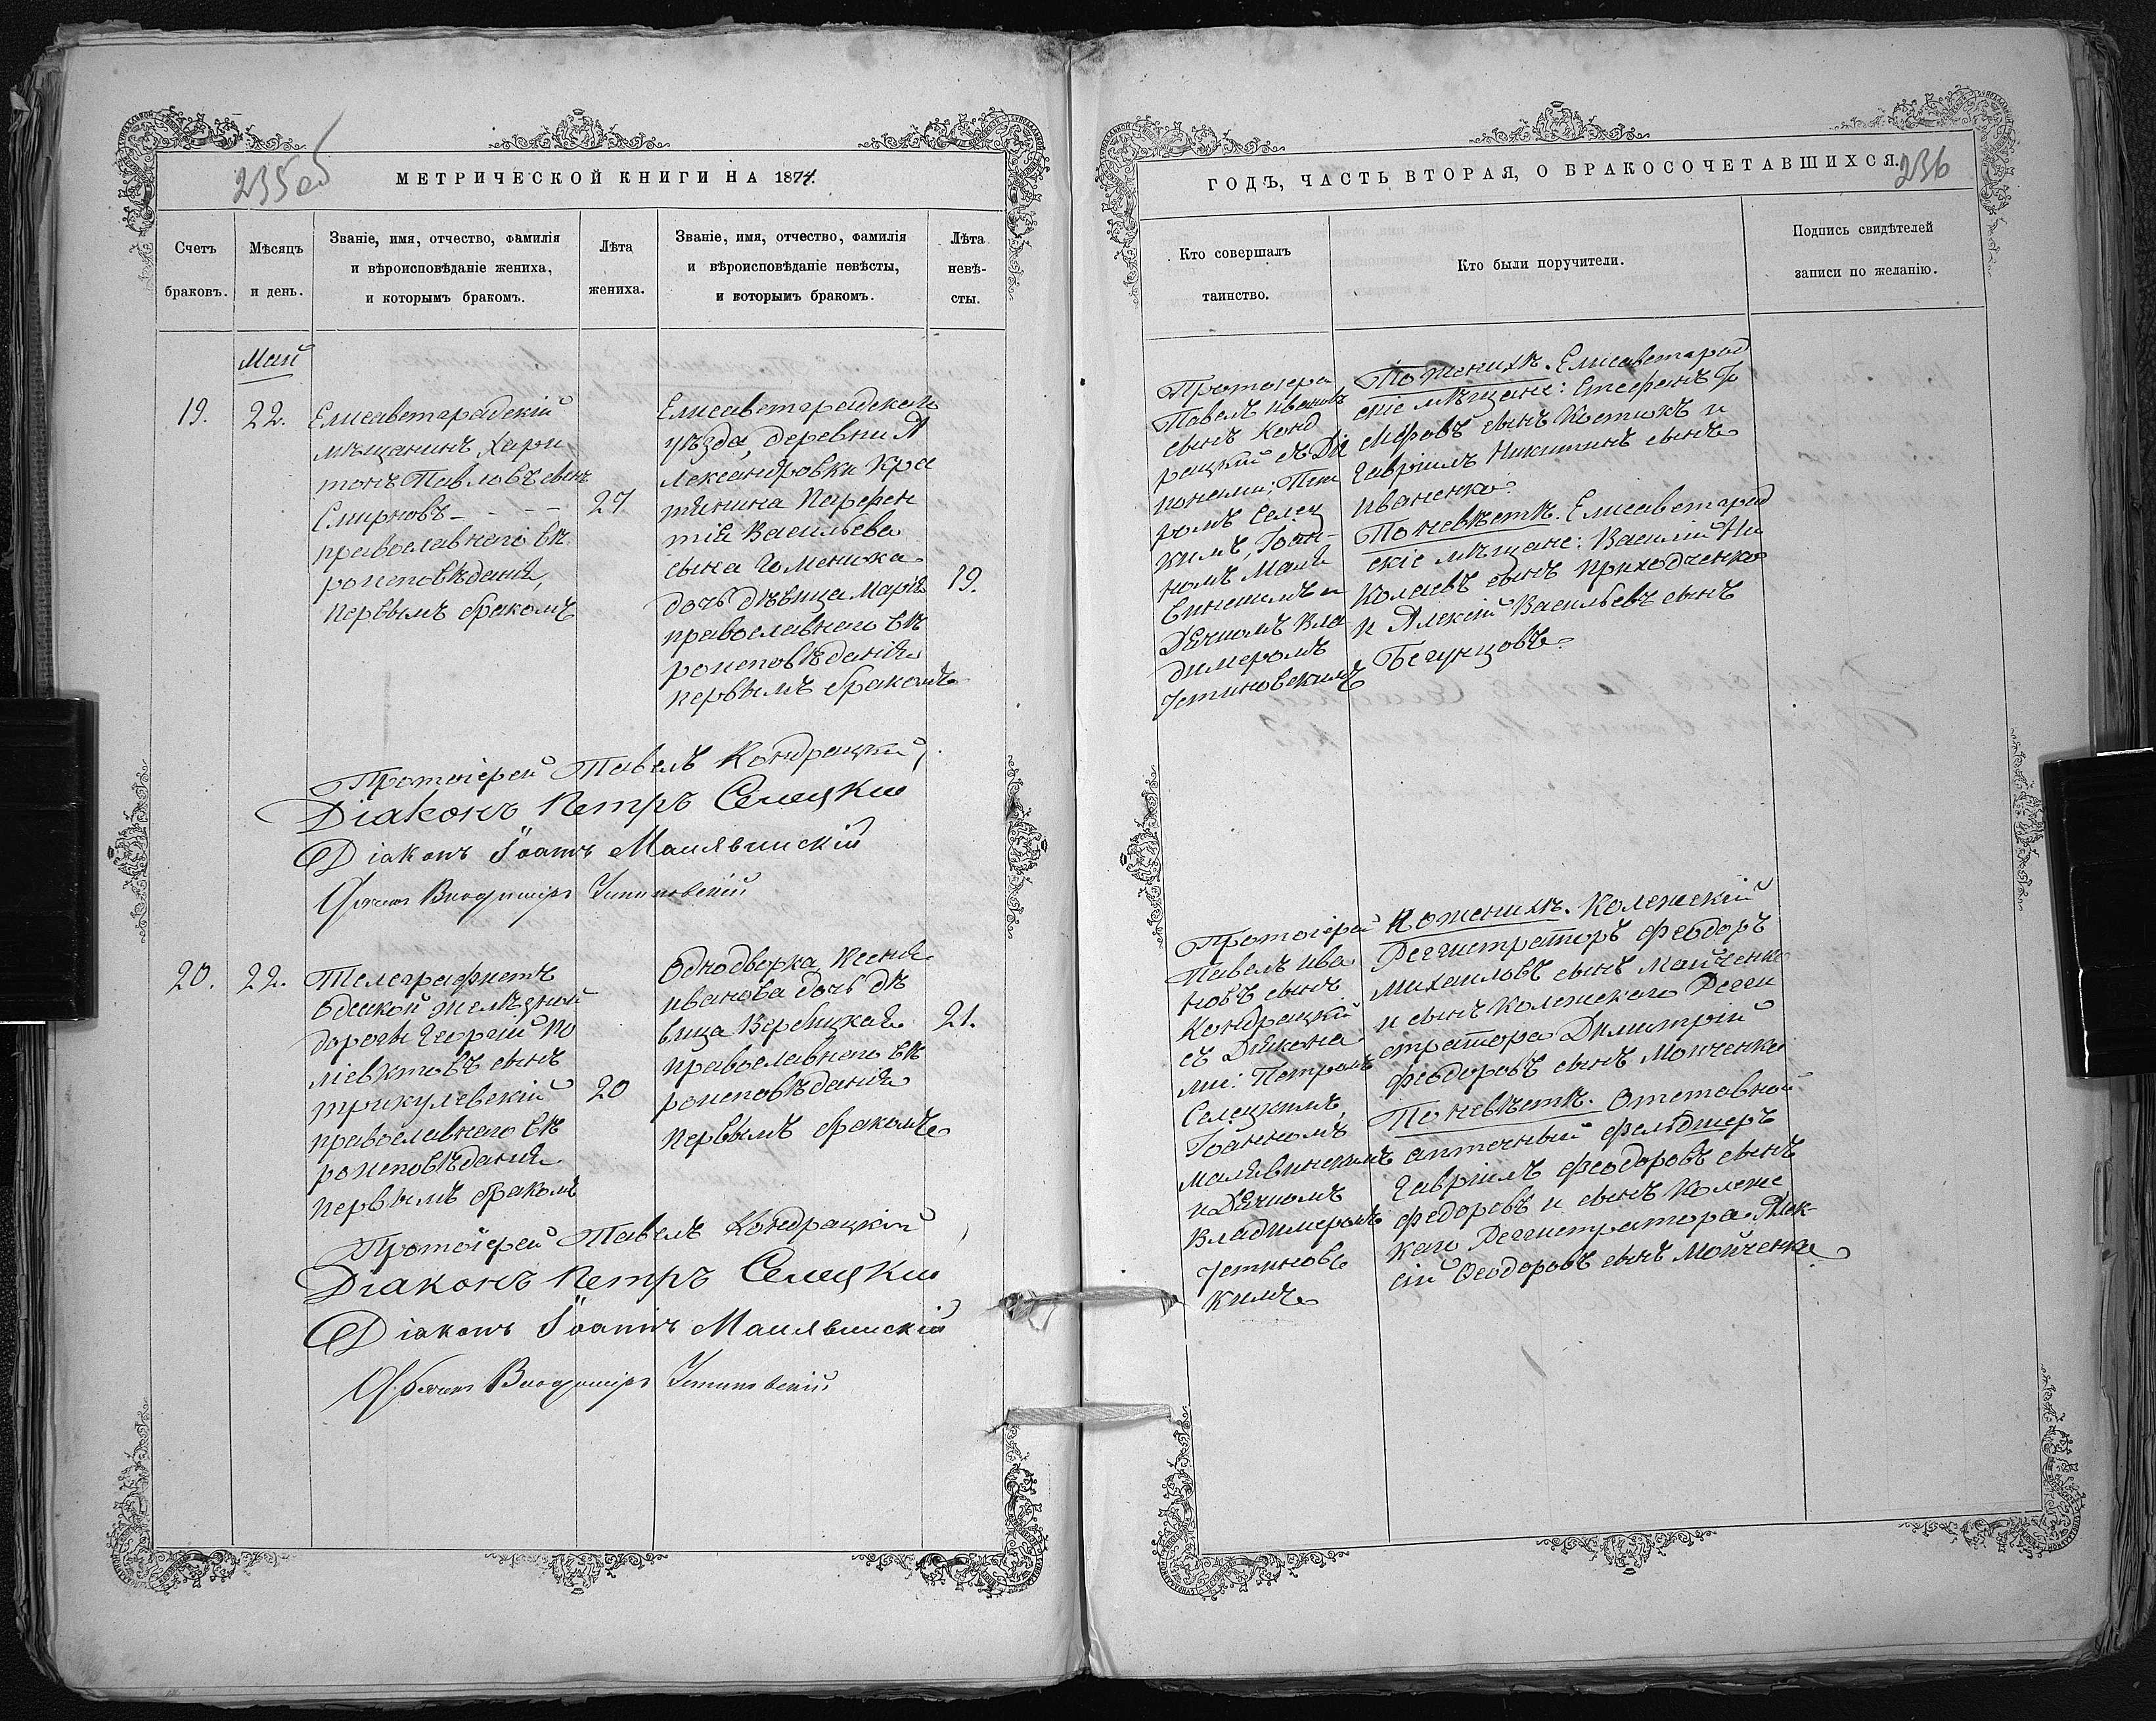 235об
МЕТРИЧЕСКОЙ КНИГИ НА 1874.
Счетъ
браковъ.
Мѣсяцъ
и день.
Званіе, имя, отчество, фамилія
и вѣроисповѣданіе жениха,
и которымъ бракомъ.
Лѣта
жениха.
Званіе, имя, отчество, фамилія
и вѣроисповѣданіе невѣсты,
и которымъ бракомъ.
Лѣта
невѣ-
сты.
Май
19.
22.
Елисаветградскій
мѣщанинъ, Хари
тонъ Павловъ сынъ
Смирновъ - - - -
православнаго вѣ
роисповѣданія,
первымъ бракомъ
27
Елисаветградскаго
уѣзда, деревни А
лександровки кре
стьянина Парфен
тія Васильева
сына Гоменюка
дочь дѣвица Марія
православнаго вѣ
роисповѣданія
первымъ бракомъ
19.
Протоіерей Павелъ Кондрацкій
Діаконъ Петръ Селецкій
Діаконъ Іоаннъ Малявинскій
Дьячекъ Владиміръ Устиновскій
20.
22.
Телеграфистъ
Одесской желѣзной
дороги Георгій По
ліевктовъ сынъ
Трикулевскій
православнаго вѣ
роисповѣданія
первымъ бракомъ
20
Однодворка Ксенія
Иванова дочь дѣ
вица Вербицкая
православнаго вѣ
роисповѣданія
первымъ бракомъ
21.
Протоіерей Павелъ Кондрацкій
Діаконъ Петръ Селецкій
Діаконъ Іоаннъ Малявинскій
Дьячекъ Владиміръ Устиновскій
236
ГОДЪ, ЧАСТЬ ВТОРАЯ, О БРАКОСОЧЕТАВШИХСЯ.
Кто совершалъ
таинство.
Кто были поручители.
Подпись свидѣтелей
записи по желанію.
Протоіере
Павелъ Ивановъ
сынъ Конд
рацкій съ Ді
конами: Пет
ромъ Селец
кимъ, Іоан-
номъ Маля
винскимъ и
Дячкомъ Вла
димеромъ
Устиновскимъ
По женихѣ. Елисаветград
скіе мѣщане: Стефанъ
сынъ Костюкъ и
Гавріилъ Никитинъ сынъ
Иваненко.
По невѣстѣ. Елисаветград
скіе мѣщане: Василій Ни
колаевъ сынъ Приходченко
и Алексій Васильевъ сынъ
Бегунцовъ.
Протоіерей
Павелъ Ива
новъ сынъ
Кондрацкій
съ Діакона
ми: Петромъ
Селецкимъ,
Іоанномъ
Малявинскимъ
и Дячкомъ
Владимеромъ
Устиновс
кимъ
По женихѣ. Колежскій
Регистраторъ Феодоръ
Михаиловъ сынъ Мойченко
и сынъ Колежскаго Реги
стратора Димитрій
Феодоровъ сынъ Мойченко
По невѣстѣ. Отставной
аптечный фельдшеръ
Гавріилъ Феодоровъ сынъ
Федоровъ и сынъ Колежс
каго Регистратора Алек-
сій Феодоровъ сынъ Мойченко